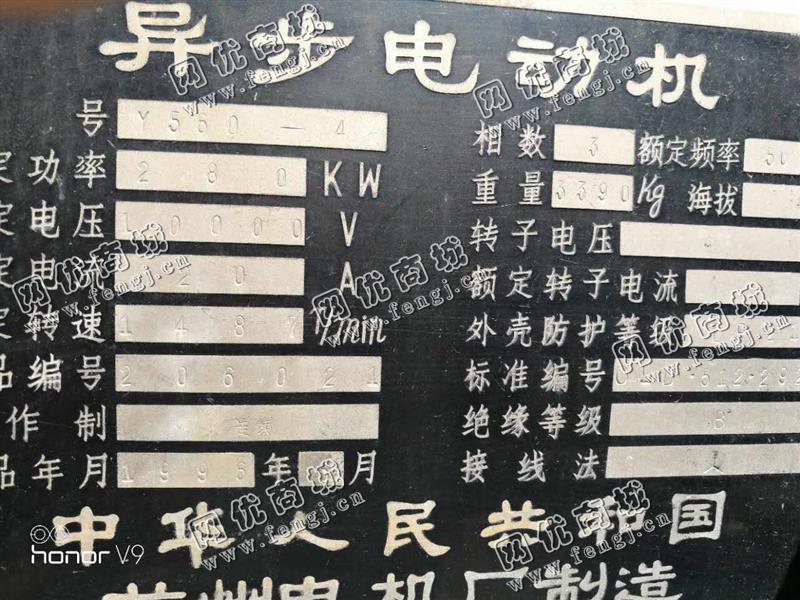 异步电动机
号 Y560-4 相数 3 额定频率 50
定功率 280 KW 重量 3390 Kg 海拔
定电压 10000 V 转子电压
定电流 20 A 额定转子电流
定转速 1487 r/min 外壳防护等级
品编号 206021 标准编号
作制 连续 绝缘等级 B
品年月 1996年 月 接线法 人
中华人民共和国
兰州电机厂制造
网优商城
www.fengj.cn
honor V9